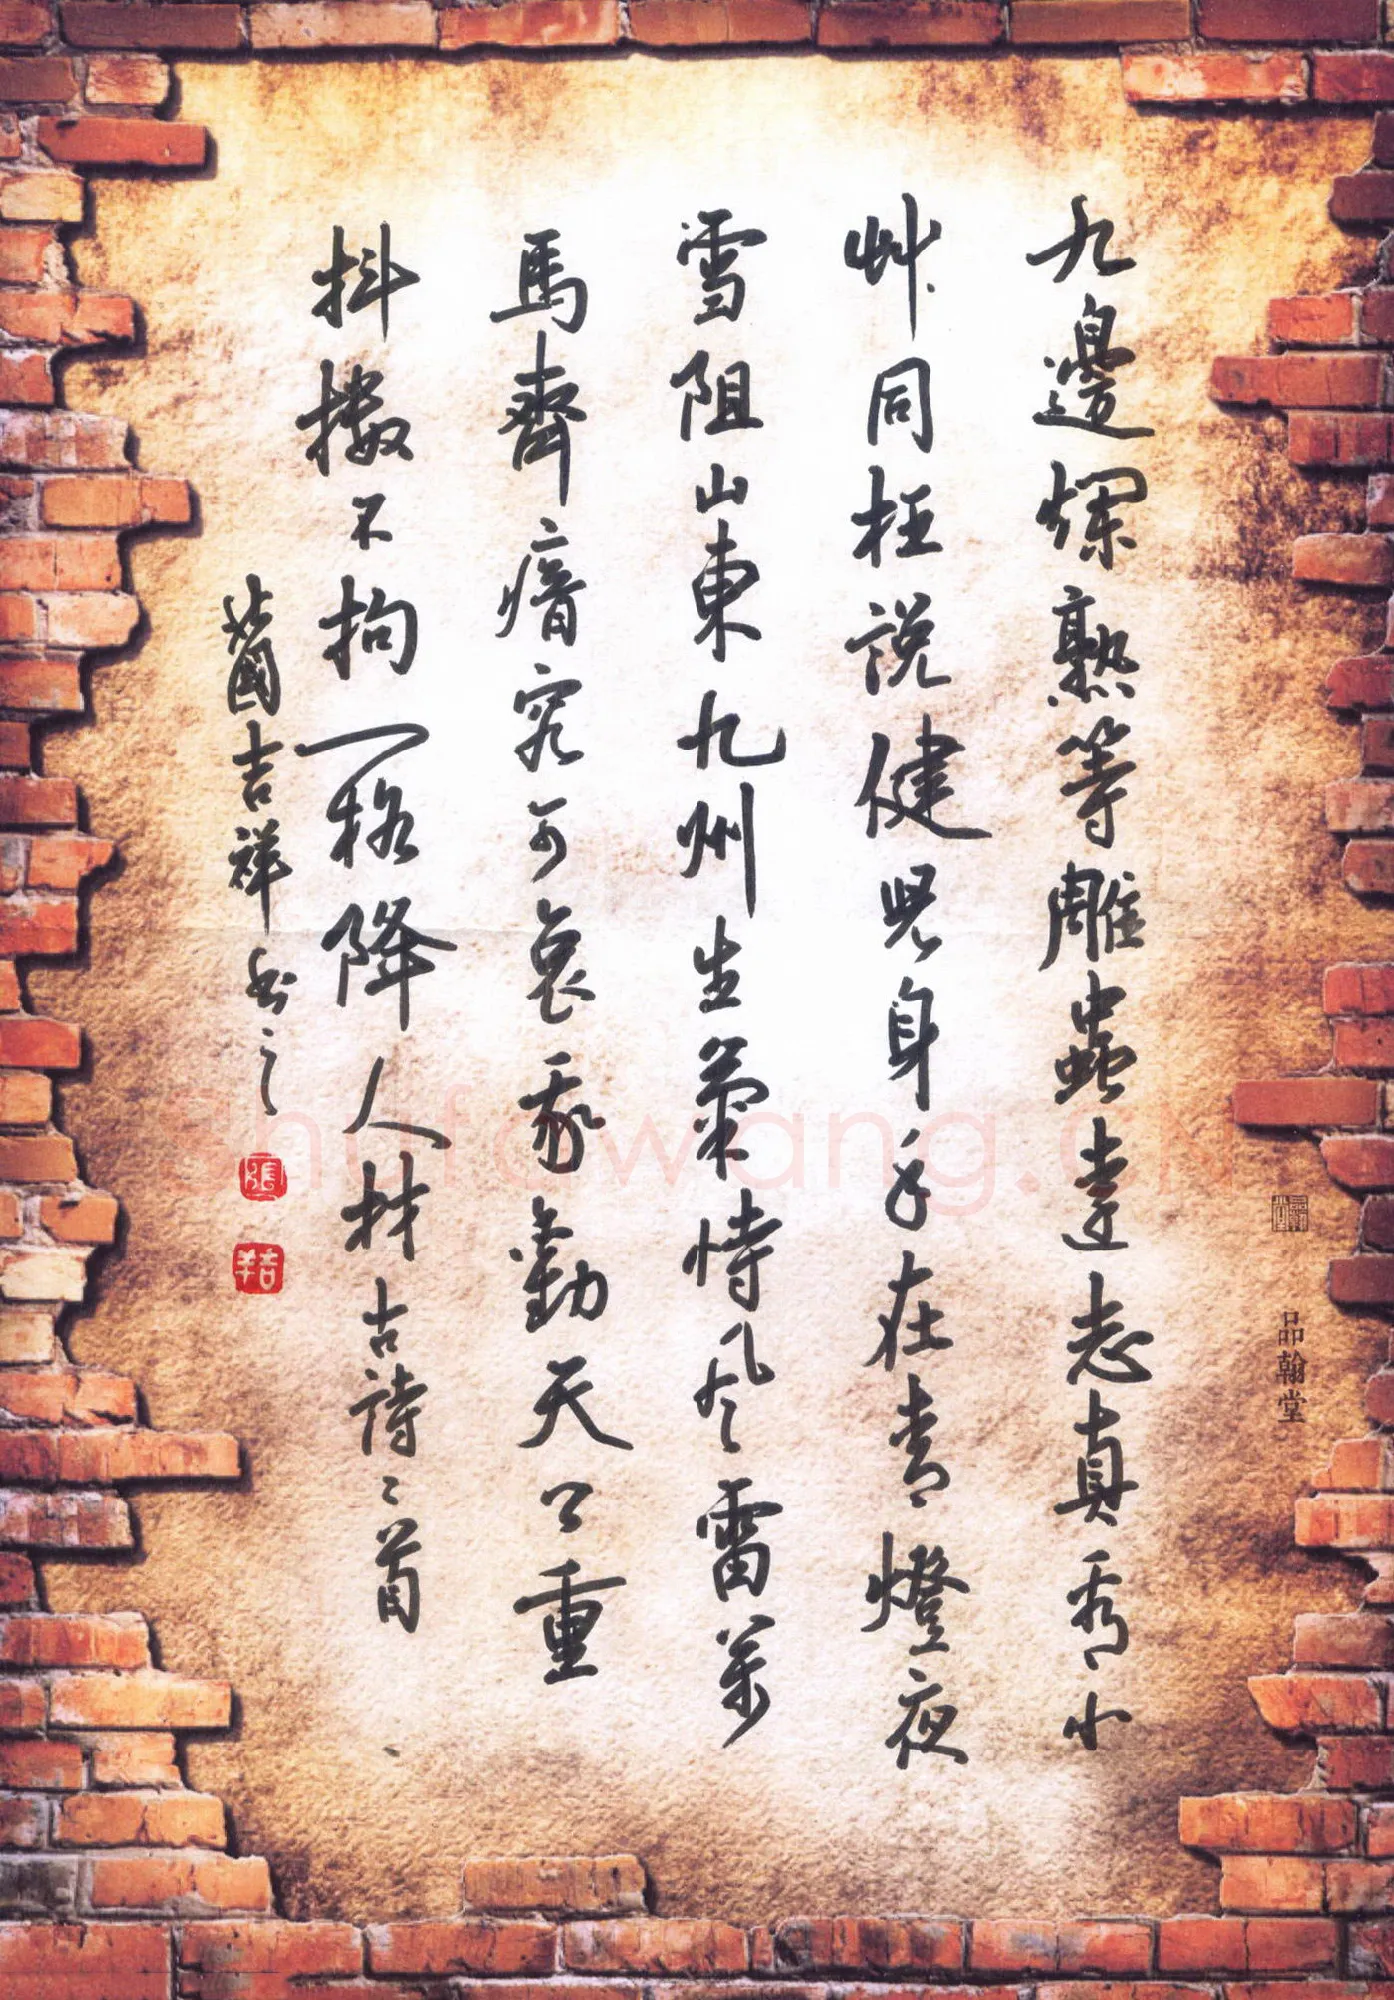 九邊爛熟等雕蟲遠志真看小
艸同枉説健兒身手在青燈夜
雪阻山東九州生氣恃風雷萬
馬齊瘖究可哀我勸天公重
抖擻不拘一格降人材古詩二首
吉祥書之
張
吉羊
品翰堂
Shufawang.CN